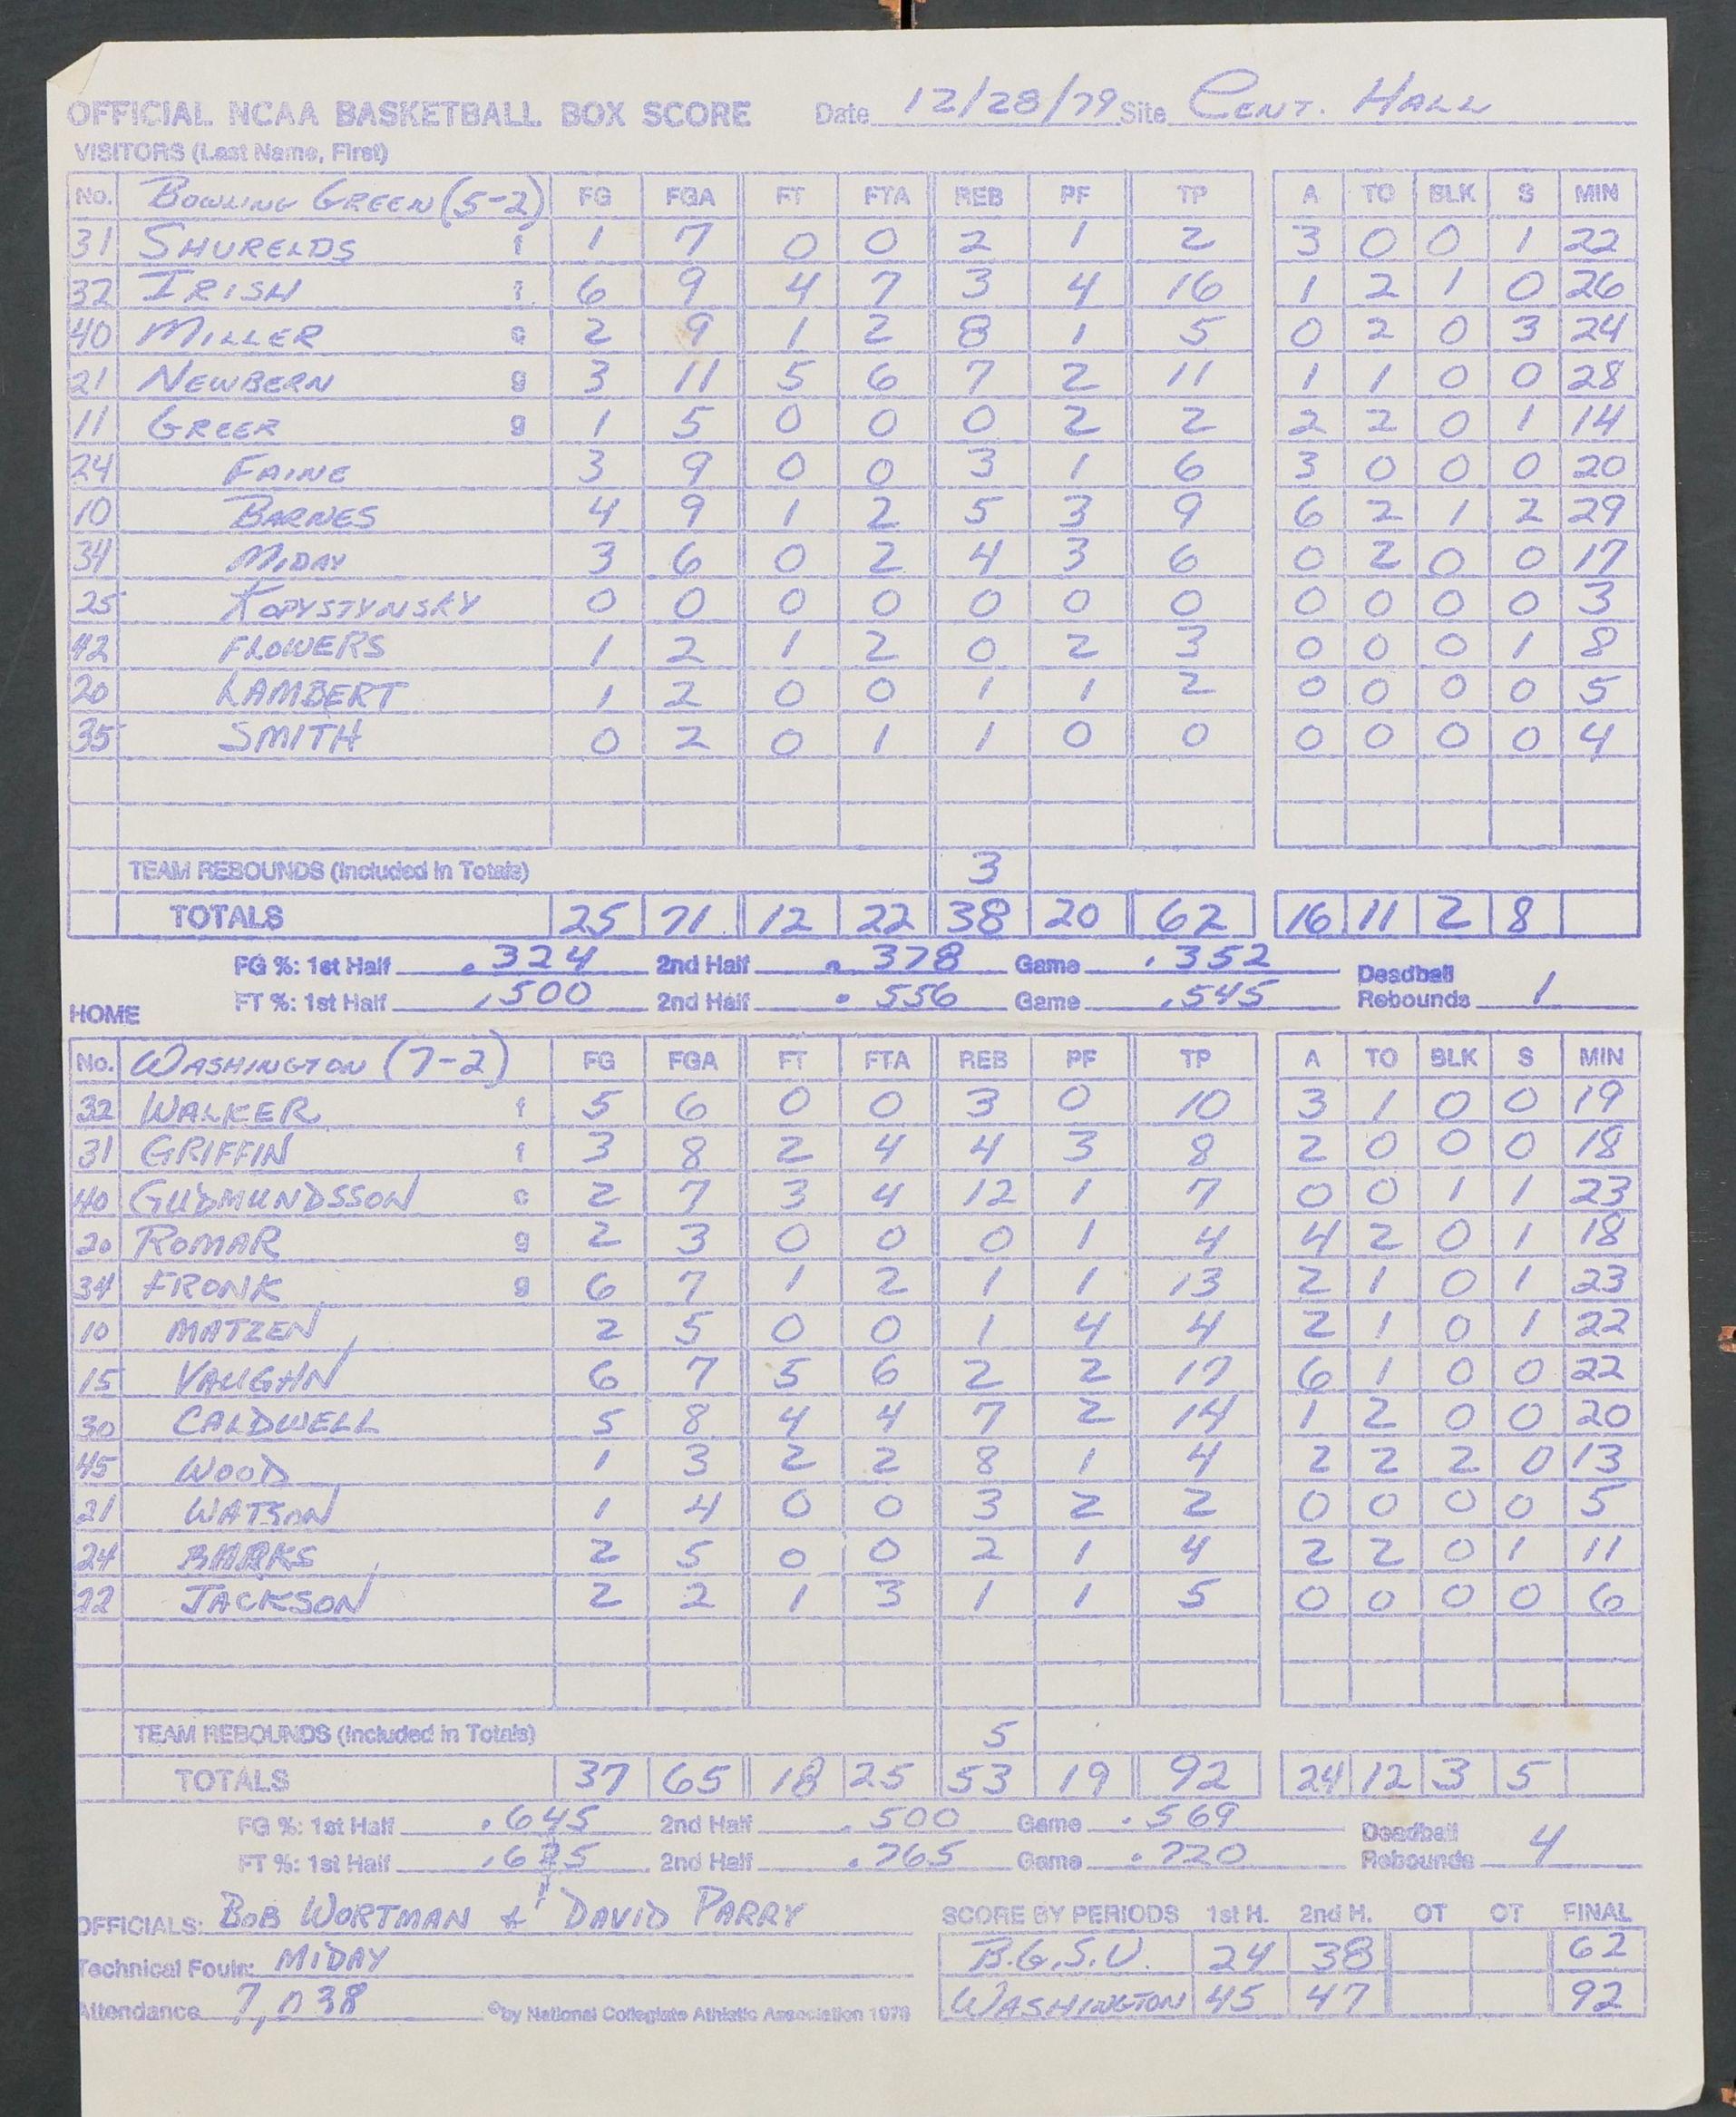 OFFICIAL NCAA BASKETBALL BOX SCORE Date 12/28/79 Site CENT. HALL
VISITORS (Last Name, First)
No. BOWLING GREEN (5-2) FG FGA FT FTA REB PF TP A TO BLK S MIN
31 SHURELDS f 1 7 0 0 2 1 2 3 0 0 1 22
32 IRISH f 6 9 4 7 3 4 16 1 2 1 0 26
40 MILLER c 2 9 1 2 8 1 5 0 2 0 3 24
21 NEWBERN g 3 11 5 6 7 2 11 1 1 0 0 28
11 GREER g 1 5 0 0 0 2 2 2 2 0 1 14
24 FAINE 3 9 0 0 3 1 6 3 0 0 0 20
10 BARNES 4 9 1 2 5 3 9 6 2 1 2 29
34 MIDAY 3 6 0 2 4 3 6 0 2 0 0 17
25 KOPYSTYNSKY 0 0 0 0 0 0 0 0 0 0 0 3
42 FLOWERS 1 2 1 2 0 2 3 0 0 0 1 8
20 LAMBERT 1 2 0 0 1 1 2 0 0 0 0 5
35 SMITH 0 2 0 1 1 0 0 0 0 0 0 4
TEAM REBOUNDS (Included in Totals) 3
TOTALS 25 71 12 22 38 20 62 16 11 2 8
FG %: 1st Half .324 2nd Half .378 Game .352 Deadball
FT %: 1st Half .500 2nd Half .556 Game .545 Rebounds 1
HOME
No. WASHINGTON (7-2) FG FGA FT FTA REB PF TP A TO BLK S MIN
32 WALKER f 5 6 0 0 3 0 10 3 1 0 0 19
31 GRIFFIN f 3 8 2 4 4 3 8 2 0 0 0 18
40 GUDMUNDSSON c 2 7 3 4 12 1 7 0 0 1 1 23
20 ROMAR g 2 3 0 0 0 1 4 4 2 0 1 18
34 FRONK g 6 7 1 2 1 1 13 2 1 0 1 23
10 MATZEN 2 5 0 0 1 4 4 2 1 0 1 22
15 VAUGHN 6 7 5 6 2 2 17 6 1 0 0 22
30 CALDWELL 5 8 4 4 7 2 14 1 2 0 0 20
45 WOOD 1 3 2 2 8 1 4 2 2 2 0 13
21 WATSON 1 4 0 0 3 2 2 0 0 0 0 5
24 2 5 0 0 2 1 4 2 2 0 1 11
22 JACKSON 2 2 1 3 1 1 5 0 0 0 0 6
TEAM REBOUNDS (Included in Totals) 5
TOTALS 37 65 18 25 53 19 92 24 12 3 5
FG %: 1st Half .645 2nd Half .500 Game .569 Deadball
FT %: 1st Half .625 2nd Half .765 Game .720 Rebounds 4
OFFICIALS: BOB WORTMAN & DAVID PARRY
Technical Fouls: MIDAY
Attendance 7,038 © by National Collegiate Athletic Association 1978
SCORE BY PERIODS 1st H. 2nd H. OT OT FINAL
B.G.S.U. 24 38 62
WASHINGTON 45 47 92